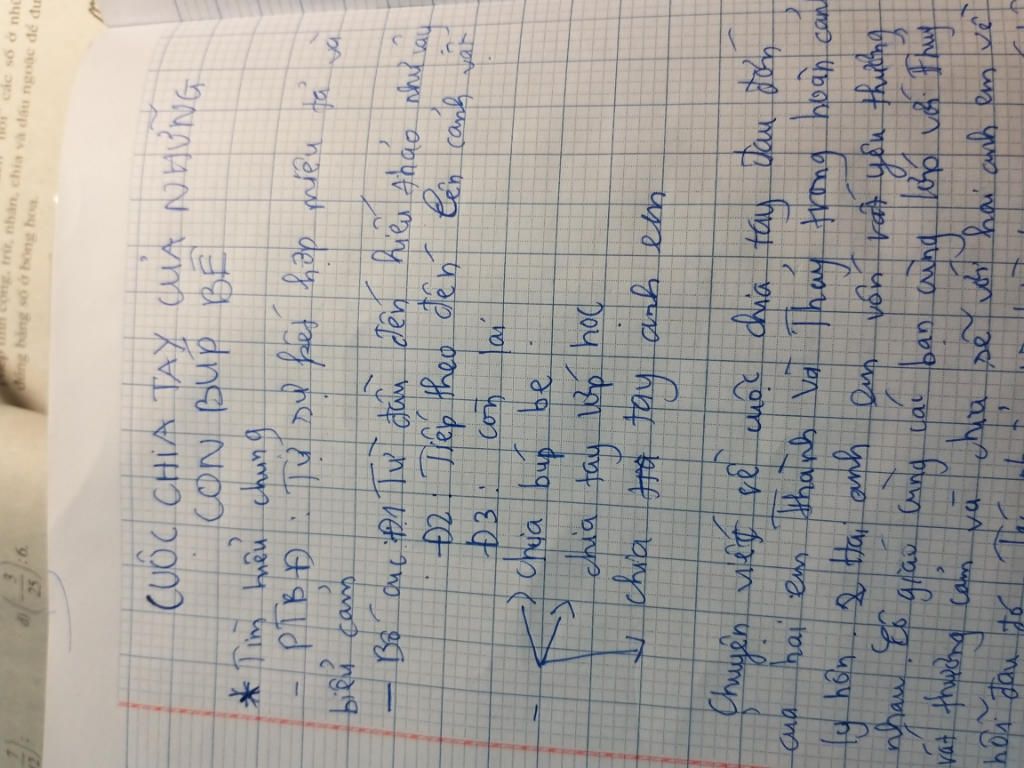 CUỘC CHIA TAY CỦA NHỮNG
CON BÚP BÊ
* Tìm hiểu chung
- PTBĐ: Tự sự kết hợp miêu tả và
biểu cảm
- Bố cục: Đ1 Từ đầu đến hiếu thảo như vậy
Đ2: Tiếp theo đến lên cảnh vật
Đ3: còn lại
- chia búp bê
chia tay lớp học
chia tay anh em
Chuyện viết về cuộc chia tay đau đớn
của hai em Thành và Thuỷ trong hoàn cảnh
ly hôn. 2 Hai anh em vốn rất yêu thương
nhau. Cô giáo cùng các bạn cùng lớp với Thuỷ
rất thương cảm và chia sẽ với hai anh em về
nỗi đau đó
đúng bằng số ở bông hoa.
các số ở
cộng, trừ, nhân, chia và dấu ngoặc để
d) (3/25) : 6.